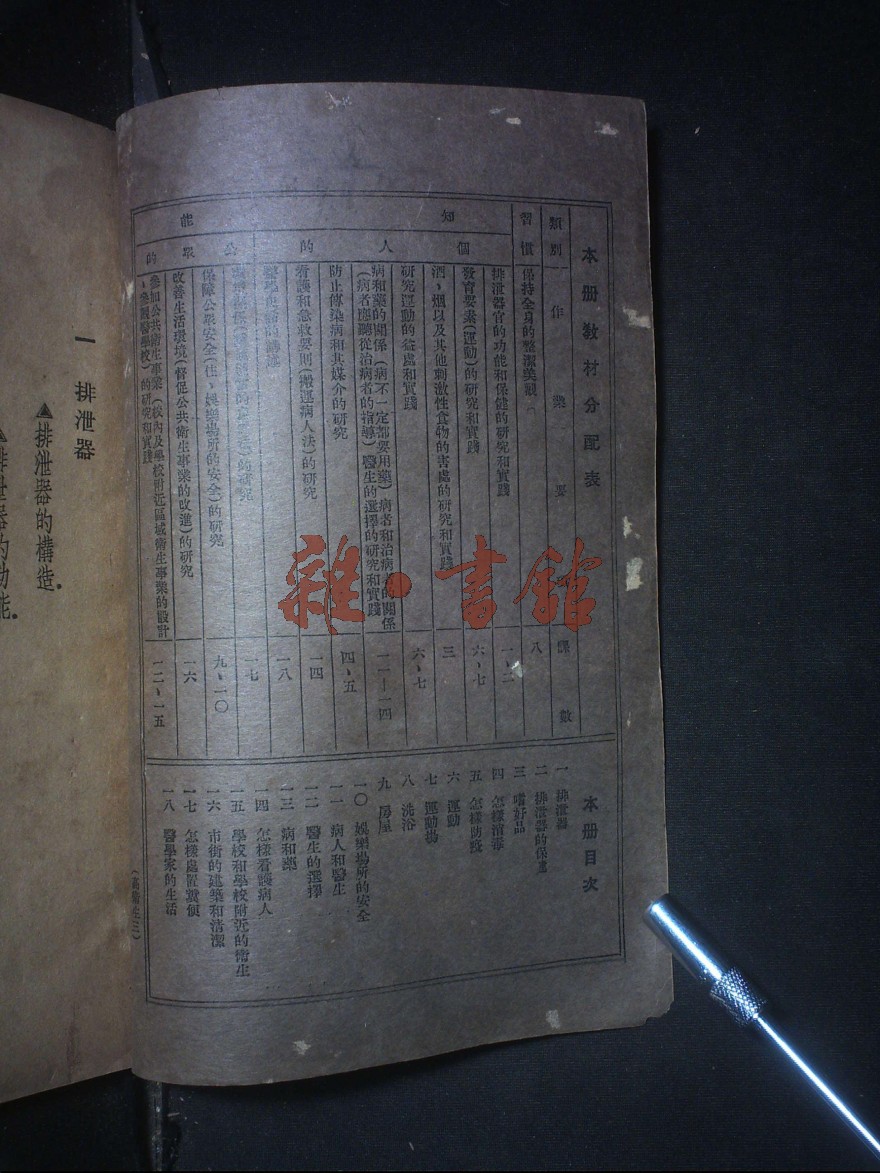 本册教材分配表
類別
作業要
課數
習慣
保持全身的整潔美觀
八
知能
個人的
排泄器官的功能和保健的研究和實踐
一、二
發育要素(運動)的研究和實踐
六、七
酒，烟以及其他刺激性食物的害處的研究和實踐
三
研究運動的益處和實踐
六、七
病和藥的關係(病不一定都要用藥)病者和治病者的關係
(病者應聽從治病者的指導)醫生的選擇的研究和實踐
一一—一四
防止傳染病和其媒介的研究
四、五
看護和急救要則(搬運病人法)的研究
一四
一八
公眾的
的研究
一七
保障公眾安全(住，娛樂場所的安全)的研究
九、一〇
改善生活環境(督促公共衛生事業的改進)的研究
一六
參加公共衛生事業(校內及學校附近區域衛生事業的設計
，參觀醫學校)的研究和實踐
一二、一五
本册目次
一 排泄器
二 排泄器的保健
三 嗜好品
四 怎樣消毒
五 怎樣防疫
六 運動
七 運動場
八 洗浴
九 房屋
一〇 娛樂場所的安全
一一 病人和醫生
一二 醫生的選擇
一三 病和藥
一四 怎樣看護病人
一五 學校和學校附近的衛生
一六 市街的建築和清潔
一七 怎樣處置糞便
一八 醫學家的生活
(高衛生三)
一 排泄器
▲排泄器的構造.
▲排泄器的功能.
雜·書館